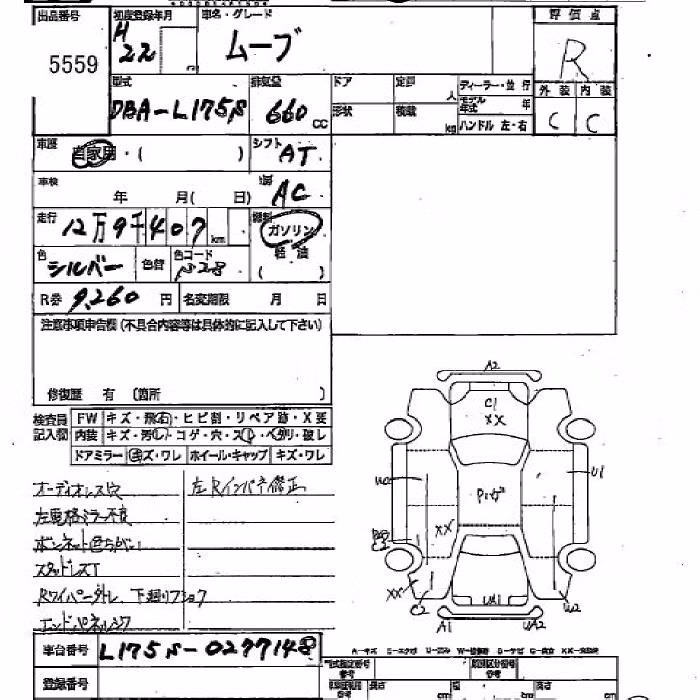 出品番号 5559
初度登録年月 H22
車名・グレード ムーブ
評価点 R
外装 C 内装 C
型式 DBA-L175S
排気量 660 cc
ドア 定員 人
形状 積載 kg
ディーラー・並行
モデル年式 年
ハンドル 左・右
車歴 自家用・( )
シフト AT
車検 年 月( 日)
AC
走行 12万9千407 km
燃料 ガソリン
軽油
( )
色 シルバー 色替 色コード S28
R券 9,260 円 名変期限 月 日
注意事項申告欄(不具合内容等は具体的に記入して下さい)
修復歴 有 (箇所 )
検査員記入欄
FW キズ・飛石・ヒビ割・リペア跡・X要
内装 キズ・汚レ・コゲ・穴・スレ・ヘタリ・破レ
ドアミラー キズ・ワレ ホイール・キャップ キズ・ワレ
オーディオレス穴
左Rインパネ修正
左電格ミラー不良
ボンネット色ちがい
スタッドレスT
Rワイパー外レ、下廻りフショク
エンドパネルシワ
車台番号 L175S-0277148
登録番号
A2
C1
XX
U1
Pいげ
XX
XX
C2
UA1
U2
A1
UA2
型式指定番号
類別区分番号
長さ 幅 高さ
cm cm